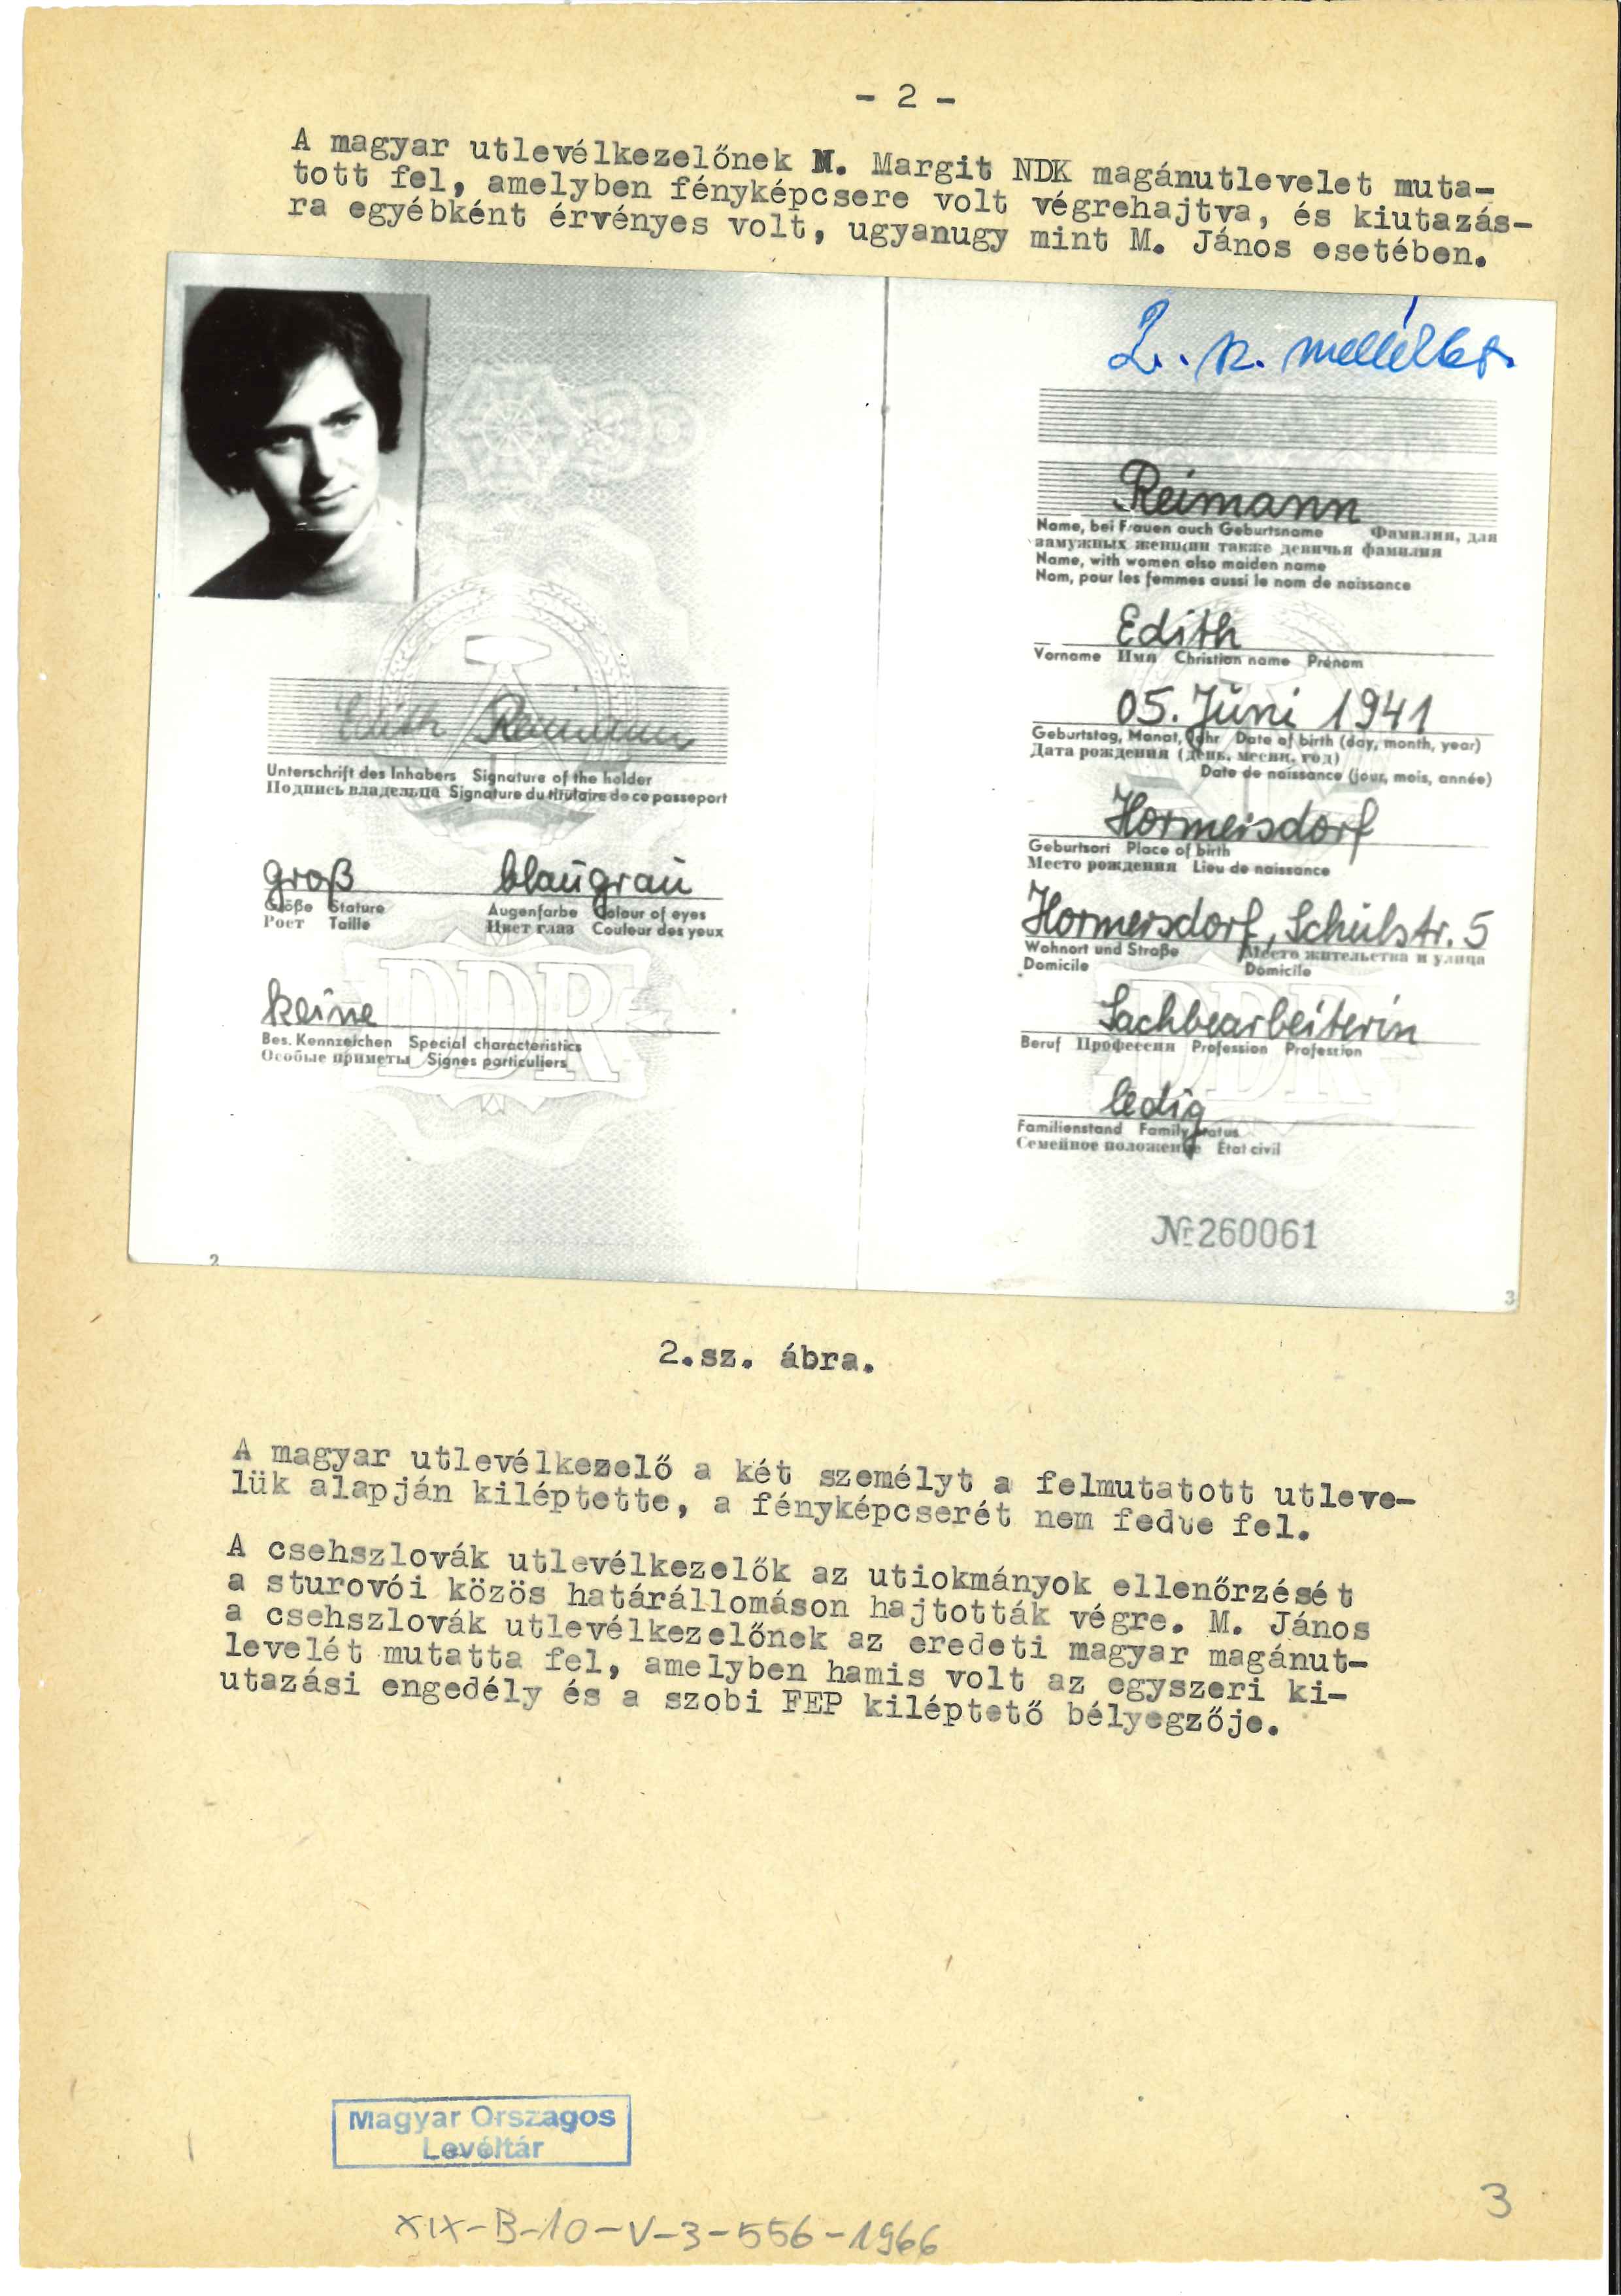 - 2 -
A magyar utlevélkezelőnek M. Margit NDK magánutlevelet muta-
tott fel, amelyben fényképcsere volt végrehajtva, és kiutazás-
ra egyébként érvényes volt, ugyanugy mint M. János esetében.
2. sz. melléklet
Edith Reimann
Unterschrift des Inhabers Signature of the holder
Подпись владельца Signature du titulaire de ce passeport
groß blaugrau
Größe Stature Augenfarbe Colour of eyes
Рост Taille Цвет глаз Couleur des yeux
keine
Bes. Kennzeichen Special characteristics
Особые приметы Signes particuliers
DDR
2
Reimann
Name, bei Frauen auch Geburtsname Фамилия, для
замужных женщин также девичья фамилия
Name, with women also maiden name
Nom, pour les femmes aussi le nom de naissance
Edith
Vorname Имя Christian name Prénom
05. Juni 1941
Geburtstag, Monat, Jahr Date of birth (day, month, year)
Дата рождения (день, месяц, год)
Date de naissance (jour, mois, année)
Hormersdorf
Geburtsort Place of birth
Место рождения Lieu de naissance
Hormersdorf, Schulstr. 5
Wohnort und Straße Место жительства и улица
Domicile Domicile
Sachbearbeiterin
Beruf Профессия Profession Profession
ledig
Familienstand Family status
Семейное положение État civil
DDR
№ 260061
3
2.sz. ábra.
A magyar utlevélkezelő a két személyt a felmutatott utleve-
lük alapján kiléptette, a fényképcserét nem fedte fel.
A csehszlovák utlevélkezelők az utiokmányok ellenőrzését
a sturovói közös határállomáson hajtották végre. M. János
a csehszlovák utlevélkezelőnek az eredeti magyar magánut-
levelét mutatta fel, amelyben hamis volt az egyszeri ki-
utazási engedély és a szobi FEP kiléptető bélyegzője.
Magyar Országos
Levéltár
3
XIX-B-10-V-3-556-1966